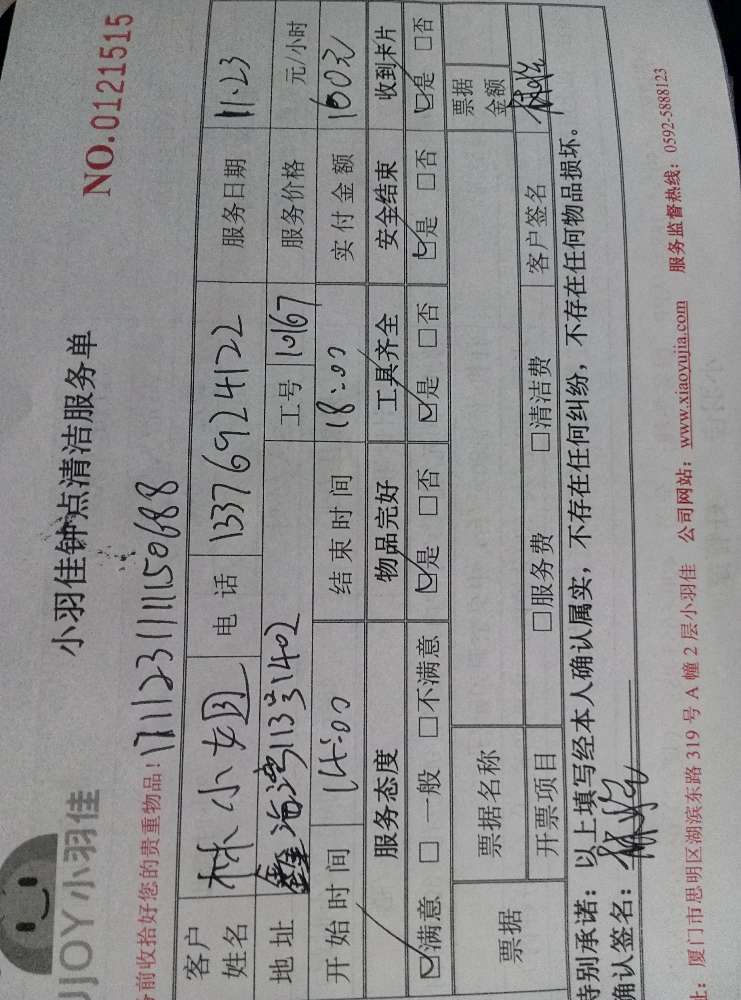 UJOY小羽佳
小羽佳钟点清洁服务单
NO.0121515
前收拾好您的贵重物品！171123111150688
客户姓名 林小姐 电话 13376924122 服务日期 11.23
地址 鑫海湾113号1402 工号 10167 服务价格 元/小时
开始时间 14:00 结束时间 18:00 实付金额 160元
服务态度 物品完好 工具齐全 安全结束 收到卡片
☑满意 □一般 □不满意 ☑是 □否 ☑是 □否 ☑是 □否 ☑是 □否
票据 票据名称 票据金额
开票项目 □服务费 □清洁费 客户签名
特别承诺：以上填写经本人确认属实，不存在任何纠纷，不存在任何物品损坏。
确认签名：
址：厦门市思明区湖滨东路 319 号 A 幢 2 层小羽佳 公司网站：www.xiaoyujia.com 服务监督热线：0592-5888123